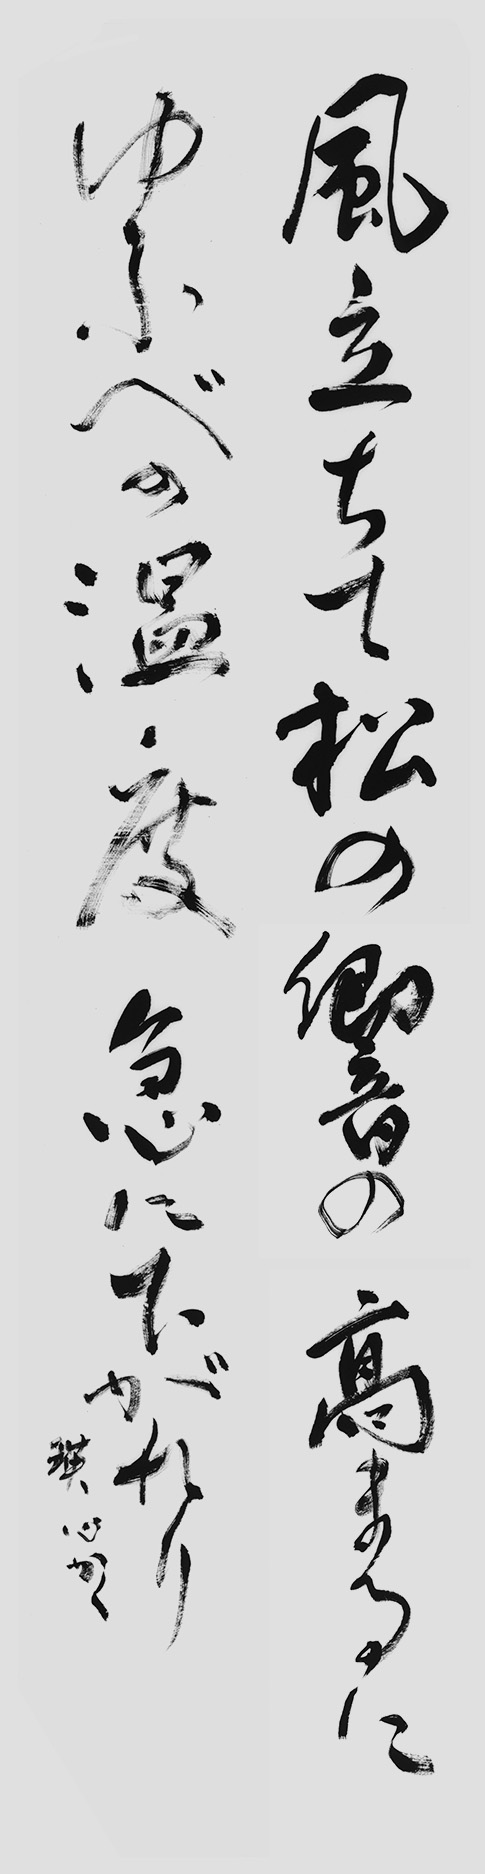 風立ちて松の響の高まるに
ゆふべの温度急に下がれり
瑛心かく